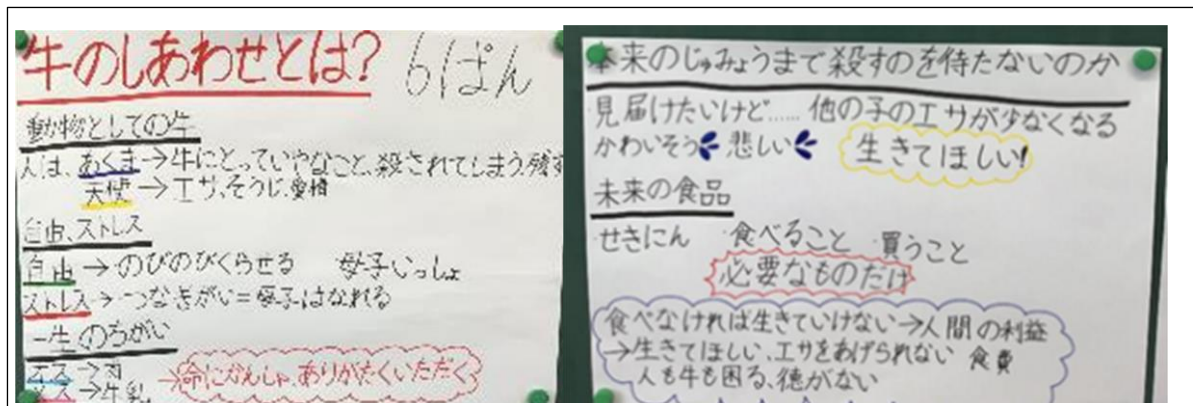 牛のしあわせとは? 6ぱん
動物としての牛
人は、あくま→牛にとっていやなこと、殺されてしまう、残す
天使→エサ、そうじ、愛情
自由、ストレス
自由→のびのびくらせる 母子いっしょ
ストレス→つなぎがい=母子はなれる
一生のちがい
オス→肉
メス→牛乳
→命にかんしゃ、ありがたくいただく
本来のじゅみょうまで殺すのを待たないのか
見届けたいけど……他の子のエサが少なくなる
かわいそう 悲しい 生きてほしい!
未来の食品
せきにん ・食べること ・買うこと
必要なものだけ
食べなければ生きていけない→人間の利益
→生きてほしい、エサをあげられない 食費
人も牛も困る、徳がない